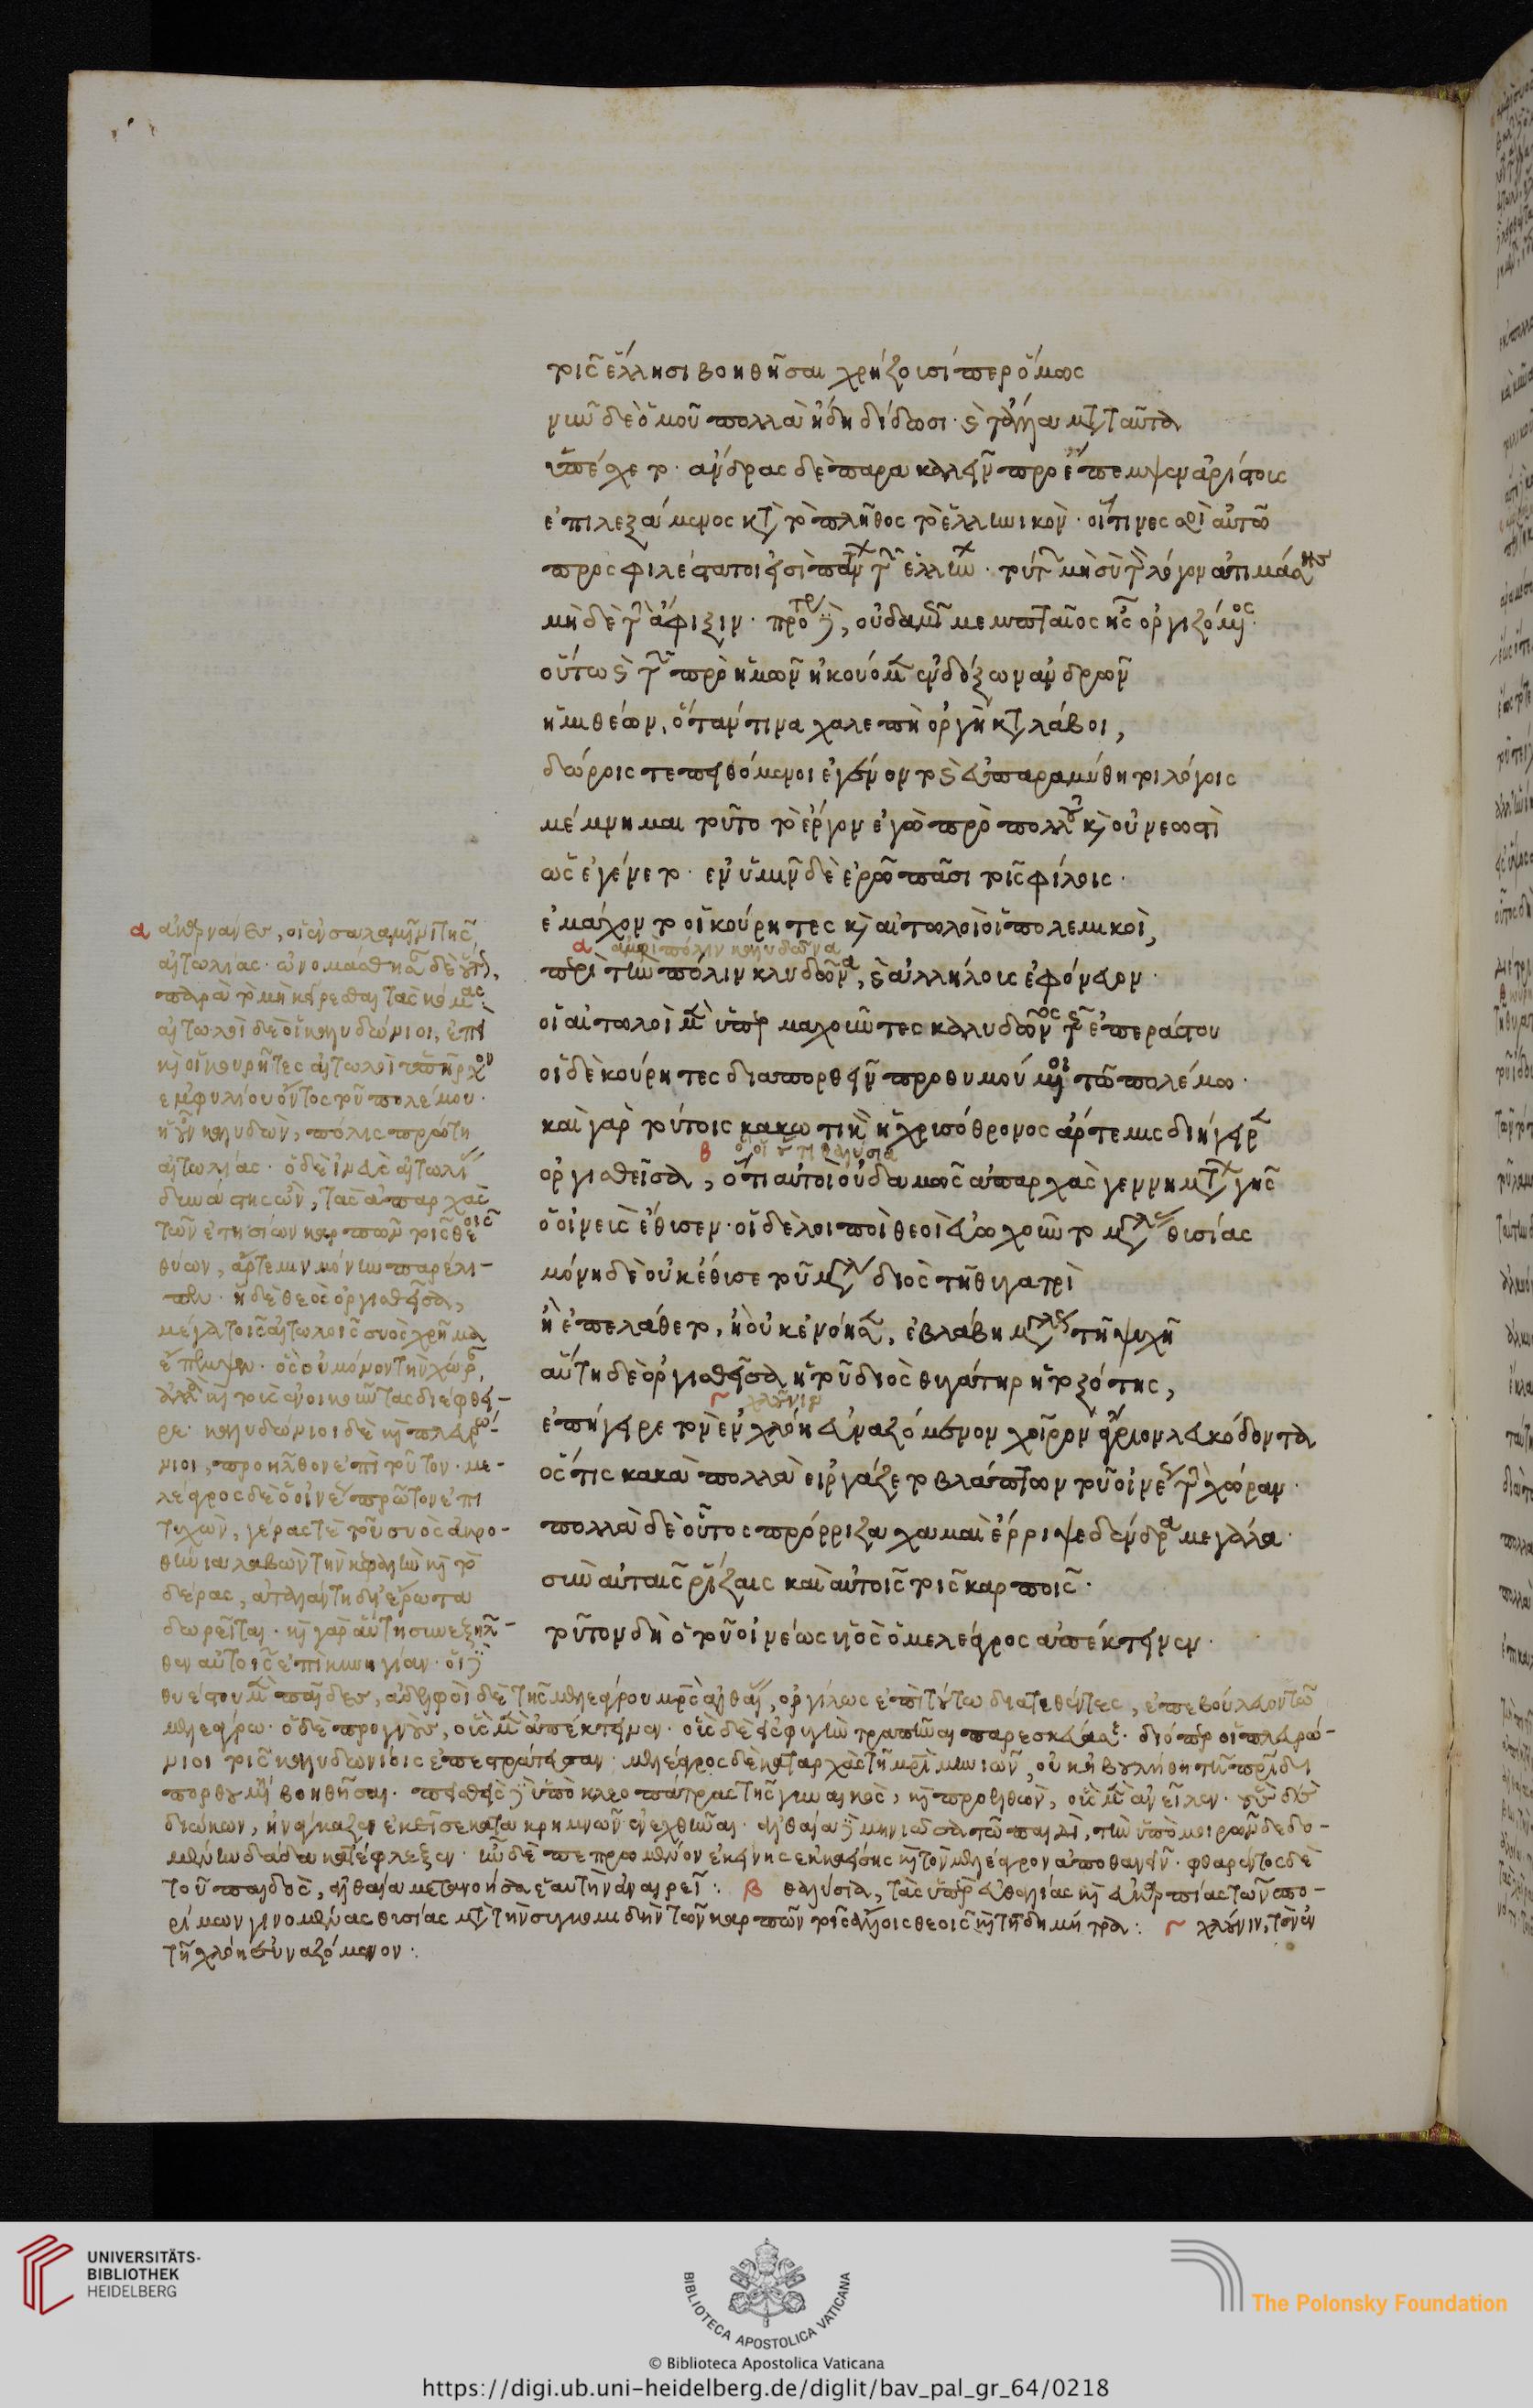 τοῖς ἕλλησι βοηθῆσαι χρήζουσί περ ὅμως
νῦν δὲ ὁμοῦ πολλὰ ἤδη δίδωσι· καὶ τἄλλα μετὰ ταῦτα
ὑπέσχετο· ἄνδρας δὲ παρακαλεῖν προέπεμψεν ἀρίστους
ἐπιλεξάμενος κατὰ τὸ πλῆθος τὸ ἑλληνικόν· οἵτινες σοὶ αὐτῷ
προσφιλέστατοί εἰσι πάντων τῶν ἑλλήνων· τούτων μὴ σὺ τὸν λόγον ἀτιμάσῃς
μὴ δὲ τὴν ἄφιξιν· πρότερον δὲ, οὐδαμῶς μεμπταῖος ἦς ὀργιζόμενος·
οὕτω καὶ τῶν πρὸ ἡμῶν ἠκούομεν ἐνδόξων ἀνδρῶν
ἡμιθέων, ὅταν τινα χαλεπὴ ὀργὴ καταλάβοι,
δώροις τε πειθόμενοι ἐγένοντο καὶ εὐπαραμύθητοι λόγοις
μέμνημαι τοῦτο τὸ ἔργον ἐγὼ πρὸ πολλοῦ καὶ οὐ νεωστὶ
ὡς ἐγένετο· ἐν ὑμῖν δὲ ἐρῶ πᾶσι τοῖς φίλοις·
ἐμάχοντο οἱ κούρητες καὶ αἰτωλοὶ οἱ πολεμικοὶ,
α ἀμφὶ πόλιν καλυδῶνα
περὶ τὴν πόλιν καλυδῶνα, καὶ ἀλλήλους ἐφόνευον·
οἱ αἰτωλοὶ μὲν ὑπερμαχοῦντες καλυδῶνος τῆς ἐπεράστου
οἱ δὲ κούρητες διαπορθεῖν προθυμούμενοι τῷ πολέμῳ·
καὶ γὰρ τούτοις κακω τινὶ ἡ χρυσόθρονος ἄρτεμις διήγειρεν
β ὅ οἱ οὔ τι θαλύσια
ὀργισθεῖσα, ὅτι αὐτοὶ οὐδαμῶς ἀπαρχὰς γεννημάτων γῆς
ὁ οἰνεὺς ἔθυσεν· οἱ δὲ λοιποὶ θεοὶ εὐωχοῦντο μεγάλας θυσίας
μόνῃ δὲ οὐκ ἔθυσε τοῦ μεγάλου διὸς τῇ θυγατρὶ
ἢ ἐπελάθετο, ἢ οὐκ ἐνόησεν, ἐβλάβη μεγάλως τῇ ψυχῇ
αὕτη δὲ ὀργισθεῖσα ἡ τοῦ διὸς θυγάτηρ ἡ τοξότης,
γ χλούνιν
ἐπήγειρε τὸν ἐν χλόῃ εὐναζόμενον χοῖρον ἄγριον λευκόδοντα
ὅστις κακὰ πολλὰ εἰργάζετο βλάπτων τοῦ οἰνέως τὴν χώραν·
πολλὰ δὲ οὗτος πρόρριζα χαμαὶ ἔρριψε δένδρα μεγάλα·
σὺν αὐταῖς ῥίζαις καὶ αὐτοῖς τοῖς καρποῖς·
τοῦτον δὴ ὁ τοῦ οἰνέως υἱὸς ὁ μελέαγρος ἀπέκτεινεν·
αἰτωλίας· ὠνομάσθησαν δὲ οὕτως,
παρὰ τὸ μὴ κείρεσθαι τὰς κόμας·
αἰτωλοὶ δὲ οἱ καλυδώνιοι, ἐπεὶ
καὶ οἱ κουρῆτες αἰτωλοὶ ὑπῆρχον
ἐμφυλίου ὄντος τοῦ πολέμου·
ἡ οὖν καλυδὼν, πόλις πρώτη
αἰτωλίας· ὁ δὲ οἰνεὺς αἰτωλίας
δυνάστης ὢν, τὰς ἀπαρχὰς
τῶν ἐτησίων καρπῶν τοῖς θεοῖς
θύων, ἄρτεμιν μόνην παρέλι-
πεν· ἡ δὲ θεὸς ὀργισθεῖσα,
μέγα τοῖς αἰτωλοῖς συὸς χρῆμα
ἔπεμψεν· ὃς οὐ μόνον τὴν χώραν,
ἀλλὰ καὶ τοὺς ἐνοικοῦντας διέφθει-
ρε· καλυδώνιοι δὲ καὶ πλευρώ-
νιοι, προῆλθον ἐπὶ τοῦτον· με-
λέαγρος δὲ ὁ οἰνέως πρῶτον ἐπι
τυχὼν, γέρας τὲ τοῦ συὸς ἀκρο-
θίνια λαβὼν τὴν κεφαλὴν καὶ τὸ
δέρας, ἀταλάντῃ δι' ἔρωτα
δωρεῖται· καὶ γὰρ αὕτη συνεξῆλ-
θεν αὐτοῖς ἐπὶ κυνηγίαν· οἱ δὲ
θυέστου μὲν παῖδες, ἀδελφοὶ δὲ τῆς μελεάγρου μητρὸς ἀλθαίας, ὀργίλως ἐπὶ τούτω διατεθέντες, ἐπεβούλευον τῷ
μελεάγρω· ὁ δὲ προγνοὺς, οὓς μὲν ἀπέκτεινεν· οὓς δὲ εἰς φυγὴν τραπῆναι παρεσκεύασεν· διόπερ οἱ πλευρώ-
νιοι τοῖς καλυδωνίοις ἐπεστράτευσαν· μελέαγρος δὲ καταρχὰς τῇ μητρὶ μηνιῶν, οὐκ ἠβουλήθη τῇ πατρίδι
πορθουμένῃ βοηθῆσαι· πεισθεὶς δὲ ὑπὸ κλεοπάτρας τῆς γυναικὸς, καὶ προελθὼν, οὓς μὲν ἀνεῖλεν· οὓς δὲ
διώκων, ἠνάγκαζεν ἐκεῖσε κατὰ κρημνῶν ἐνεχθῆναι· ἀλθαία δὲ μηνιῶσα τῷ παιδὶ, τὴν ὑπὸ μοιρῶν δεδο-
μένην δᾷδα κατέφλεξεν· ἦν δὲ πεπρωμένον ἐκείνης ἐκκαείσης καὶ τὸν μελέαγρον ἀποθανεῖν· φθαρέντος δὲ
τοῦ παιδὸς, ἀλθαία μετανοήσασα ἑαυτὴν ἀναιρεῖ: β θαλύσια, τὰς ὑπὲρ εὐθαλίας καὶ εὐκαρπίας τῶν σπο-
ρίμων γινομένας θυσίας μετὰ τὴν συγκομιδὴν τῶν καρπῶν τοῖς ἄλλοις θεοῖς καὶ τῇ δήμητρα: γ χλούνιν, τὸν ἐν
τῇ χλόῃ εὐναζόμενον:
UNIVERSITÄTS-
BIBLIOTHEK
HEIDELBERG
BIBLIOTECA APOSTOLICA VATICANA
The Polonsky Foundation
© Biblioteca Apostolica Vaticana
https://digi.ub.uni-heidelberg.de/diglit/bav_pal_gr_64/0218